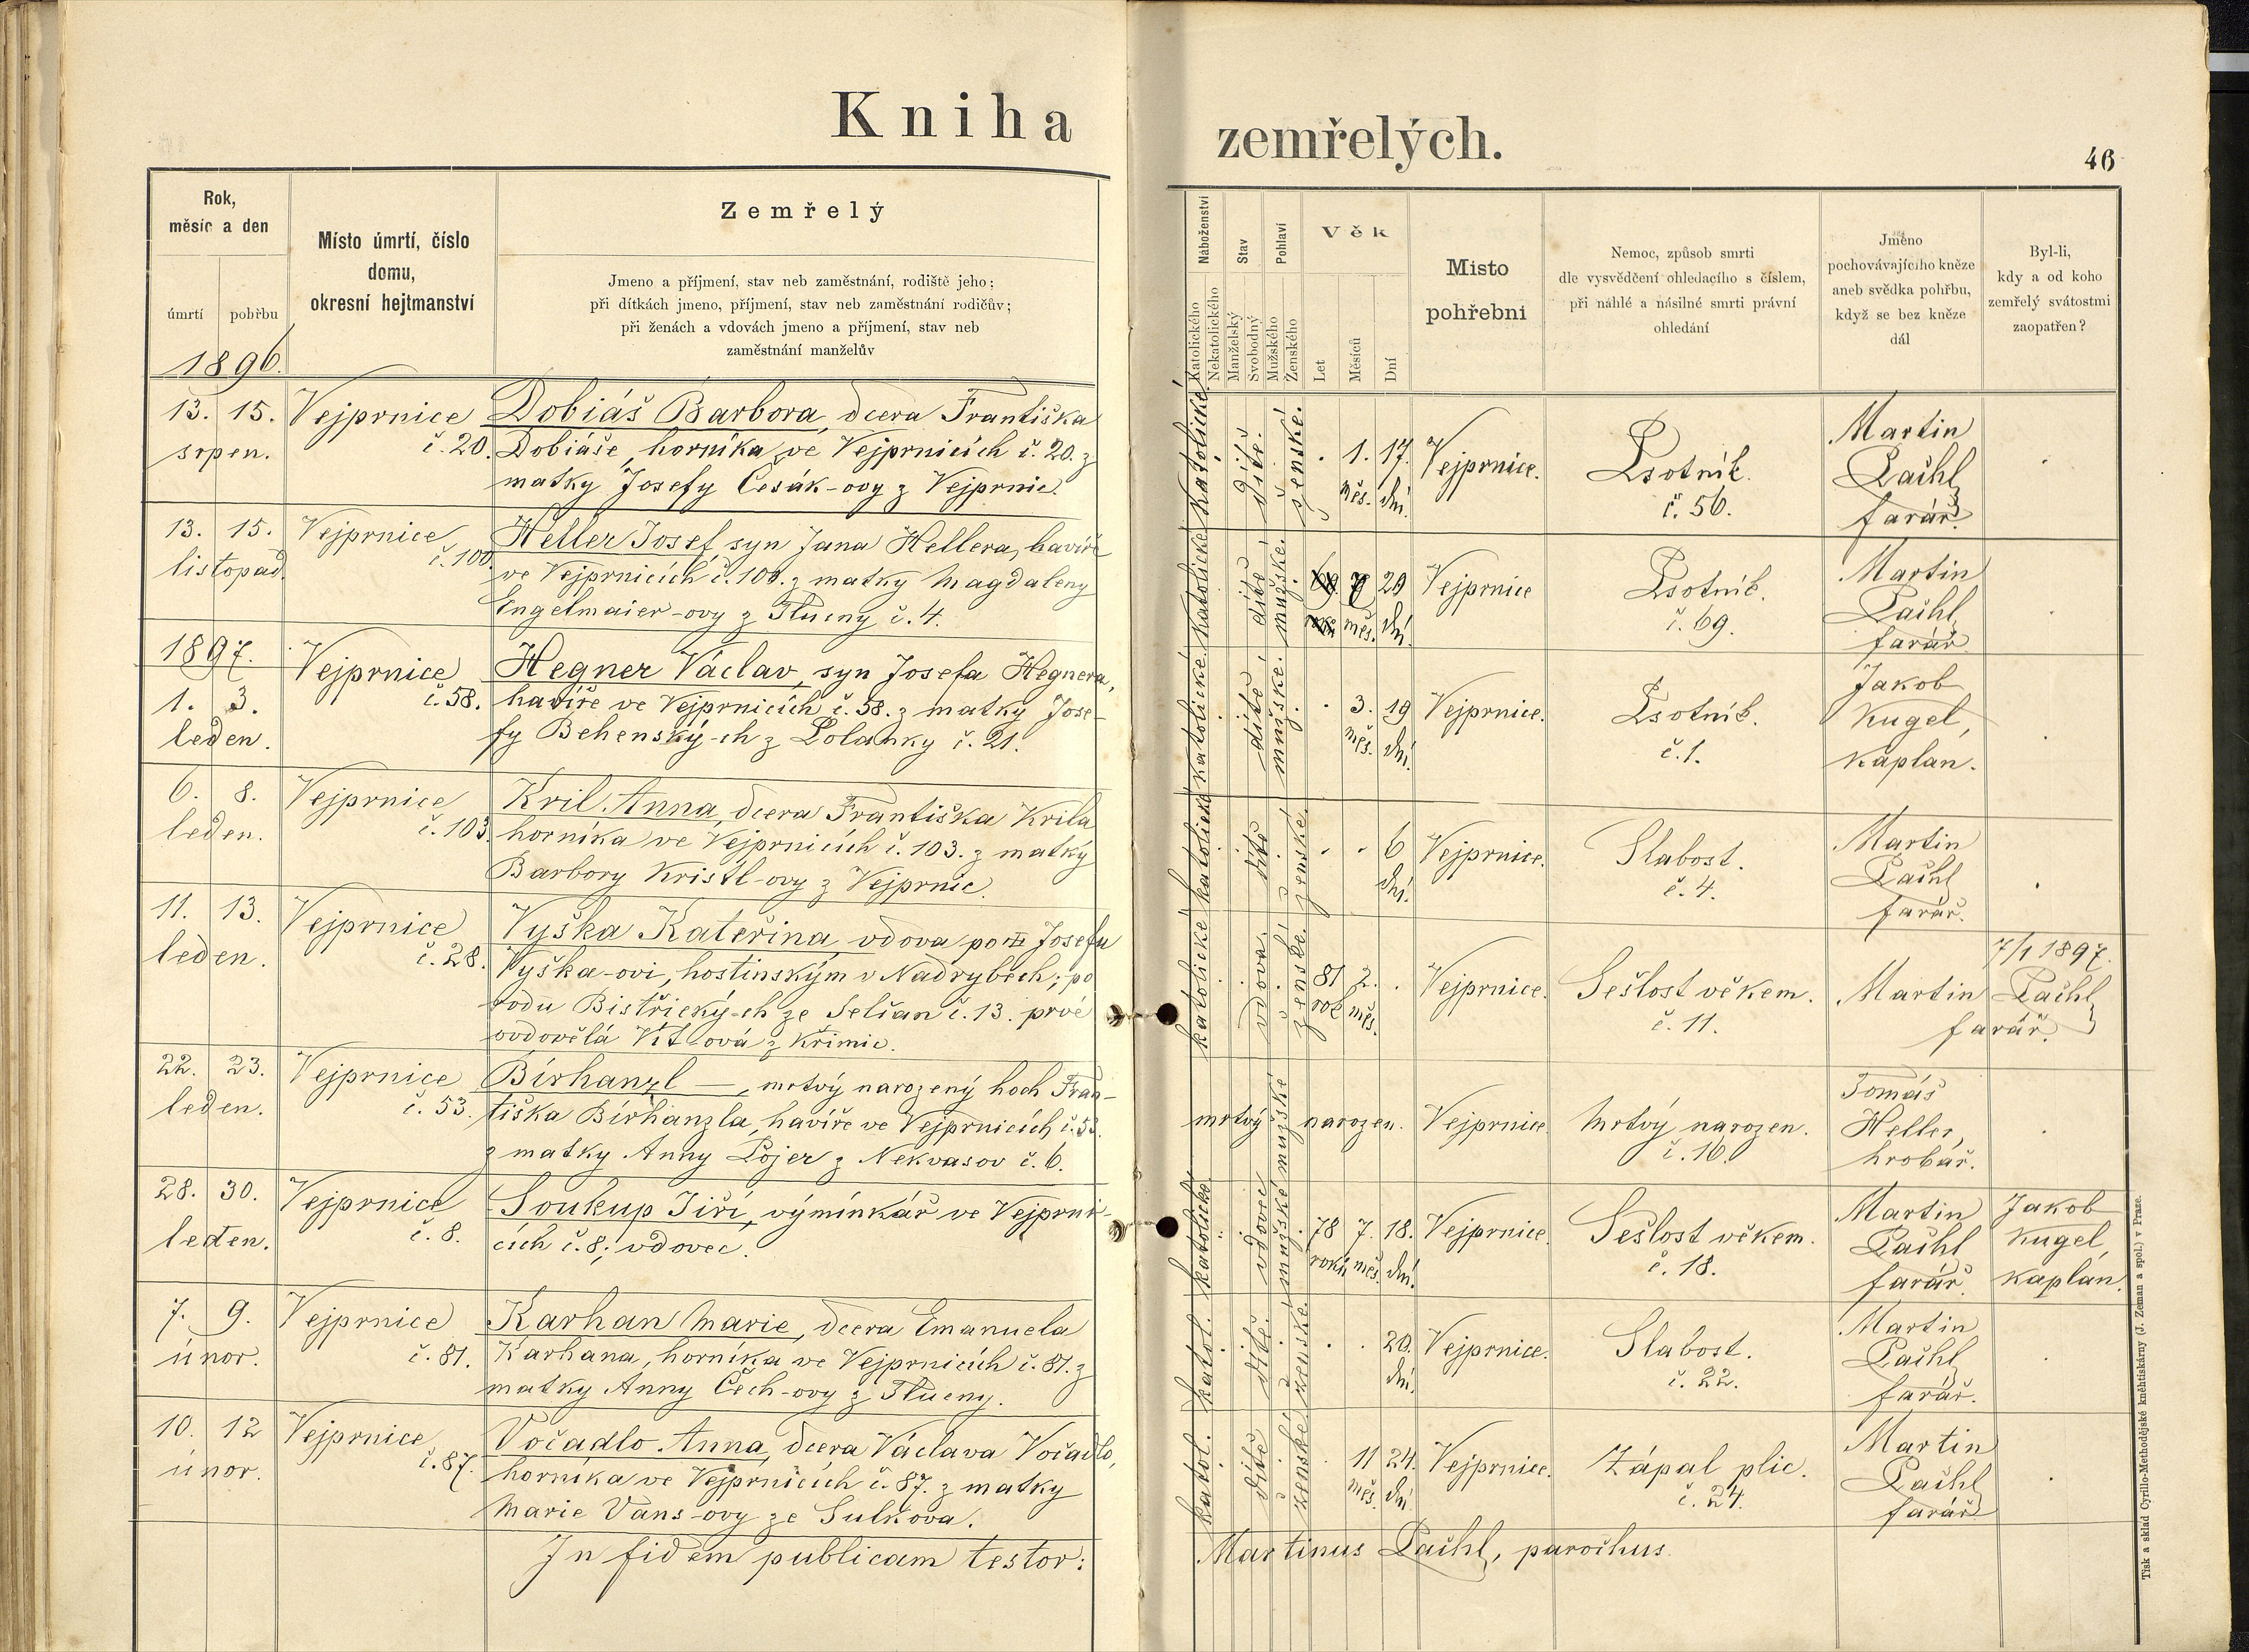 Kniha zemřelých.
46
Rok,
měsíc a den
úmrtí
pohřbu
1896.
Místo úmrtí, číslo
domu,
okresní hejtmanství
Zemřelý
Jmeno a příjmení, stav neb zaměstnání, rodiště jeho;
při dítkách jmeno, příjmení, stav neb zaměstnání rodičův;
při ženách a vdovách jmeno a příjmení, stav neb
zaměstnání manželův
Náboženství
Katolického
Nekatolického
Stav
Manželský
Svobodný
Pohlaví
Mužského
Ženského
Věk
Let
Měsíců
Dní
Misto
pohřebni
Nemoc, způsob smrti
dle vysvědčení ohledacího s číslem,
při náhlé a násilné smrti právní
ohledání
Jméno
pochovávajícího kněze
aneb svědka pohřbu,
když se bez kněze
dál
Byl-li,
kdy a od koho
zemřelý svátostmi
zaopatřen?
13. 15.
srpen.
Vejprnice
č. 20.
Dobiáš Barbora, dcera Františka
Dobiáše, horníka ve Vejprnicích č. 20. z
matky Josefy Česák-ovy z Vejprnic.
katolické
dítě.
ženské.
. 1. 17.
měs. dní.
Vejprnice.
Psotník.
č. 56.
Martin
Pačhl
farář.
13. 15.
listopad.
Vejprnice
č. 100.
Heller Josef, syn Jana Hellera, havíře
ve Vejprnicích č. 100. z matky Magdaleny
Engelmaier-ovy z Tlucny č. 4.
katolické
dítě
mužské.
7 29
měs. dní.
Vejprnice
Psotník.
č. 69.
Martin
Pačhl
farář
1897.
1. 3.
leden.
Vejprnice
č. 58.
Hegner Václav, syn Josefa Hegnera,
havíře ve Vejprnicích č. 58. z matky Jose-
fy Behenský-ch z Polanky č. 21.
katolické.
dítě
mužské.
. 3. 19
měs. dní.
Vejprnice.
Psotník.
č. 1.
Jakob
Kugel,
kaplan.
6. 8.
leden.
Vejprnice
č. 103.
Kril Anna, dcera Františka Krila
horníka ve Vejprnicích č. 103. z matky
Barbory Kristl-ovy z Vejprnic.
katolické
dítě
ženské.
. . 6
dní.
Vejprnice.
Slabost.
č. 4.
Martin
Pačhl
farář.
11. 13.
leden.
Vejprnice
č. 28.
Vyška Kateřina, vdova po Josefu
Vyška-ovi, hostinským v Nadrybech; po
rodu Bistřický-ch ze Selčan č. 13. prvé
ovdovělá Vít-ová z Křimic.
katolické
vdova.
ženské.
81 2. .
rok měs.
Vejprnice.
Sešlost věkem.
č. 11.
7/1 1897.
Martin Pačhl
farář.
22. 23.
leden.
Vejprnice
č. 53.
Birhanzl —, mrtvý narozený hoch Fran-
tiška Birhanzla, havíře ve Vejprnicích č. 53.
z matky Anny Lojer z Nekvasov č. 6.
mrtvý narozen.
mužské
Vejprnice.
Mrtvý narozen.
č. 16.
Tomáš
Heller,
hrobař.
28. 30.
leden.
Vejprnice
č. 8.
Soukup Jiří, výminkář ve Vejprni-
cích č. 8; vdovec.
katolické
vdovec
mužské
78 7. 18.
roků měs. dní.
Vejprnice.
Sešlost věkem.
č. 18.
Martin
Pačhl
farář.
Jakob
Kugel,
kaplan.
7. 9.
únor.
Vejprnice
č. 81.
Karhan Marie, dcera Emanuela
Karhana, horníka ve Vejprnicích č. 81. z
matky Anny Čech-ovy z Tlucny.
katol.
dítě.
ženské.
. . 20.
dní.
Vejprnice.
Slabost.
č. 22.
Martin
Pačhl
farář.
10. 12
únor.
Vejprnice
č. 87.
Vočadlo Anna, dcera Václava Vočadlo,
horníka ve Vejprnicích č. 87. z matky
Marie Vans-ovy ze Sulkova.
katol.
dítě
ženské
. 11 24.
měs. dní
Vejprnice.
Zápal plic.
č. 24.
Martin
Pačhl
farář
In fidem publicam testor:
Martinus Pačhl, parochus.
Tisk a sklad Cyrillo-Methodějské kněhtiskárny (J. Zeman a spol.) v Praze.